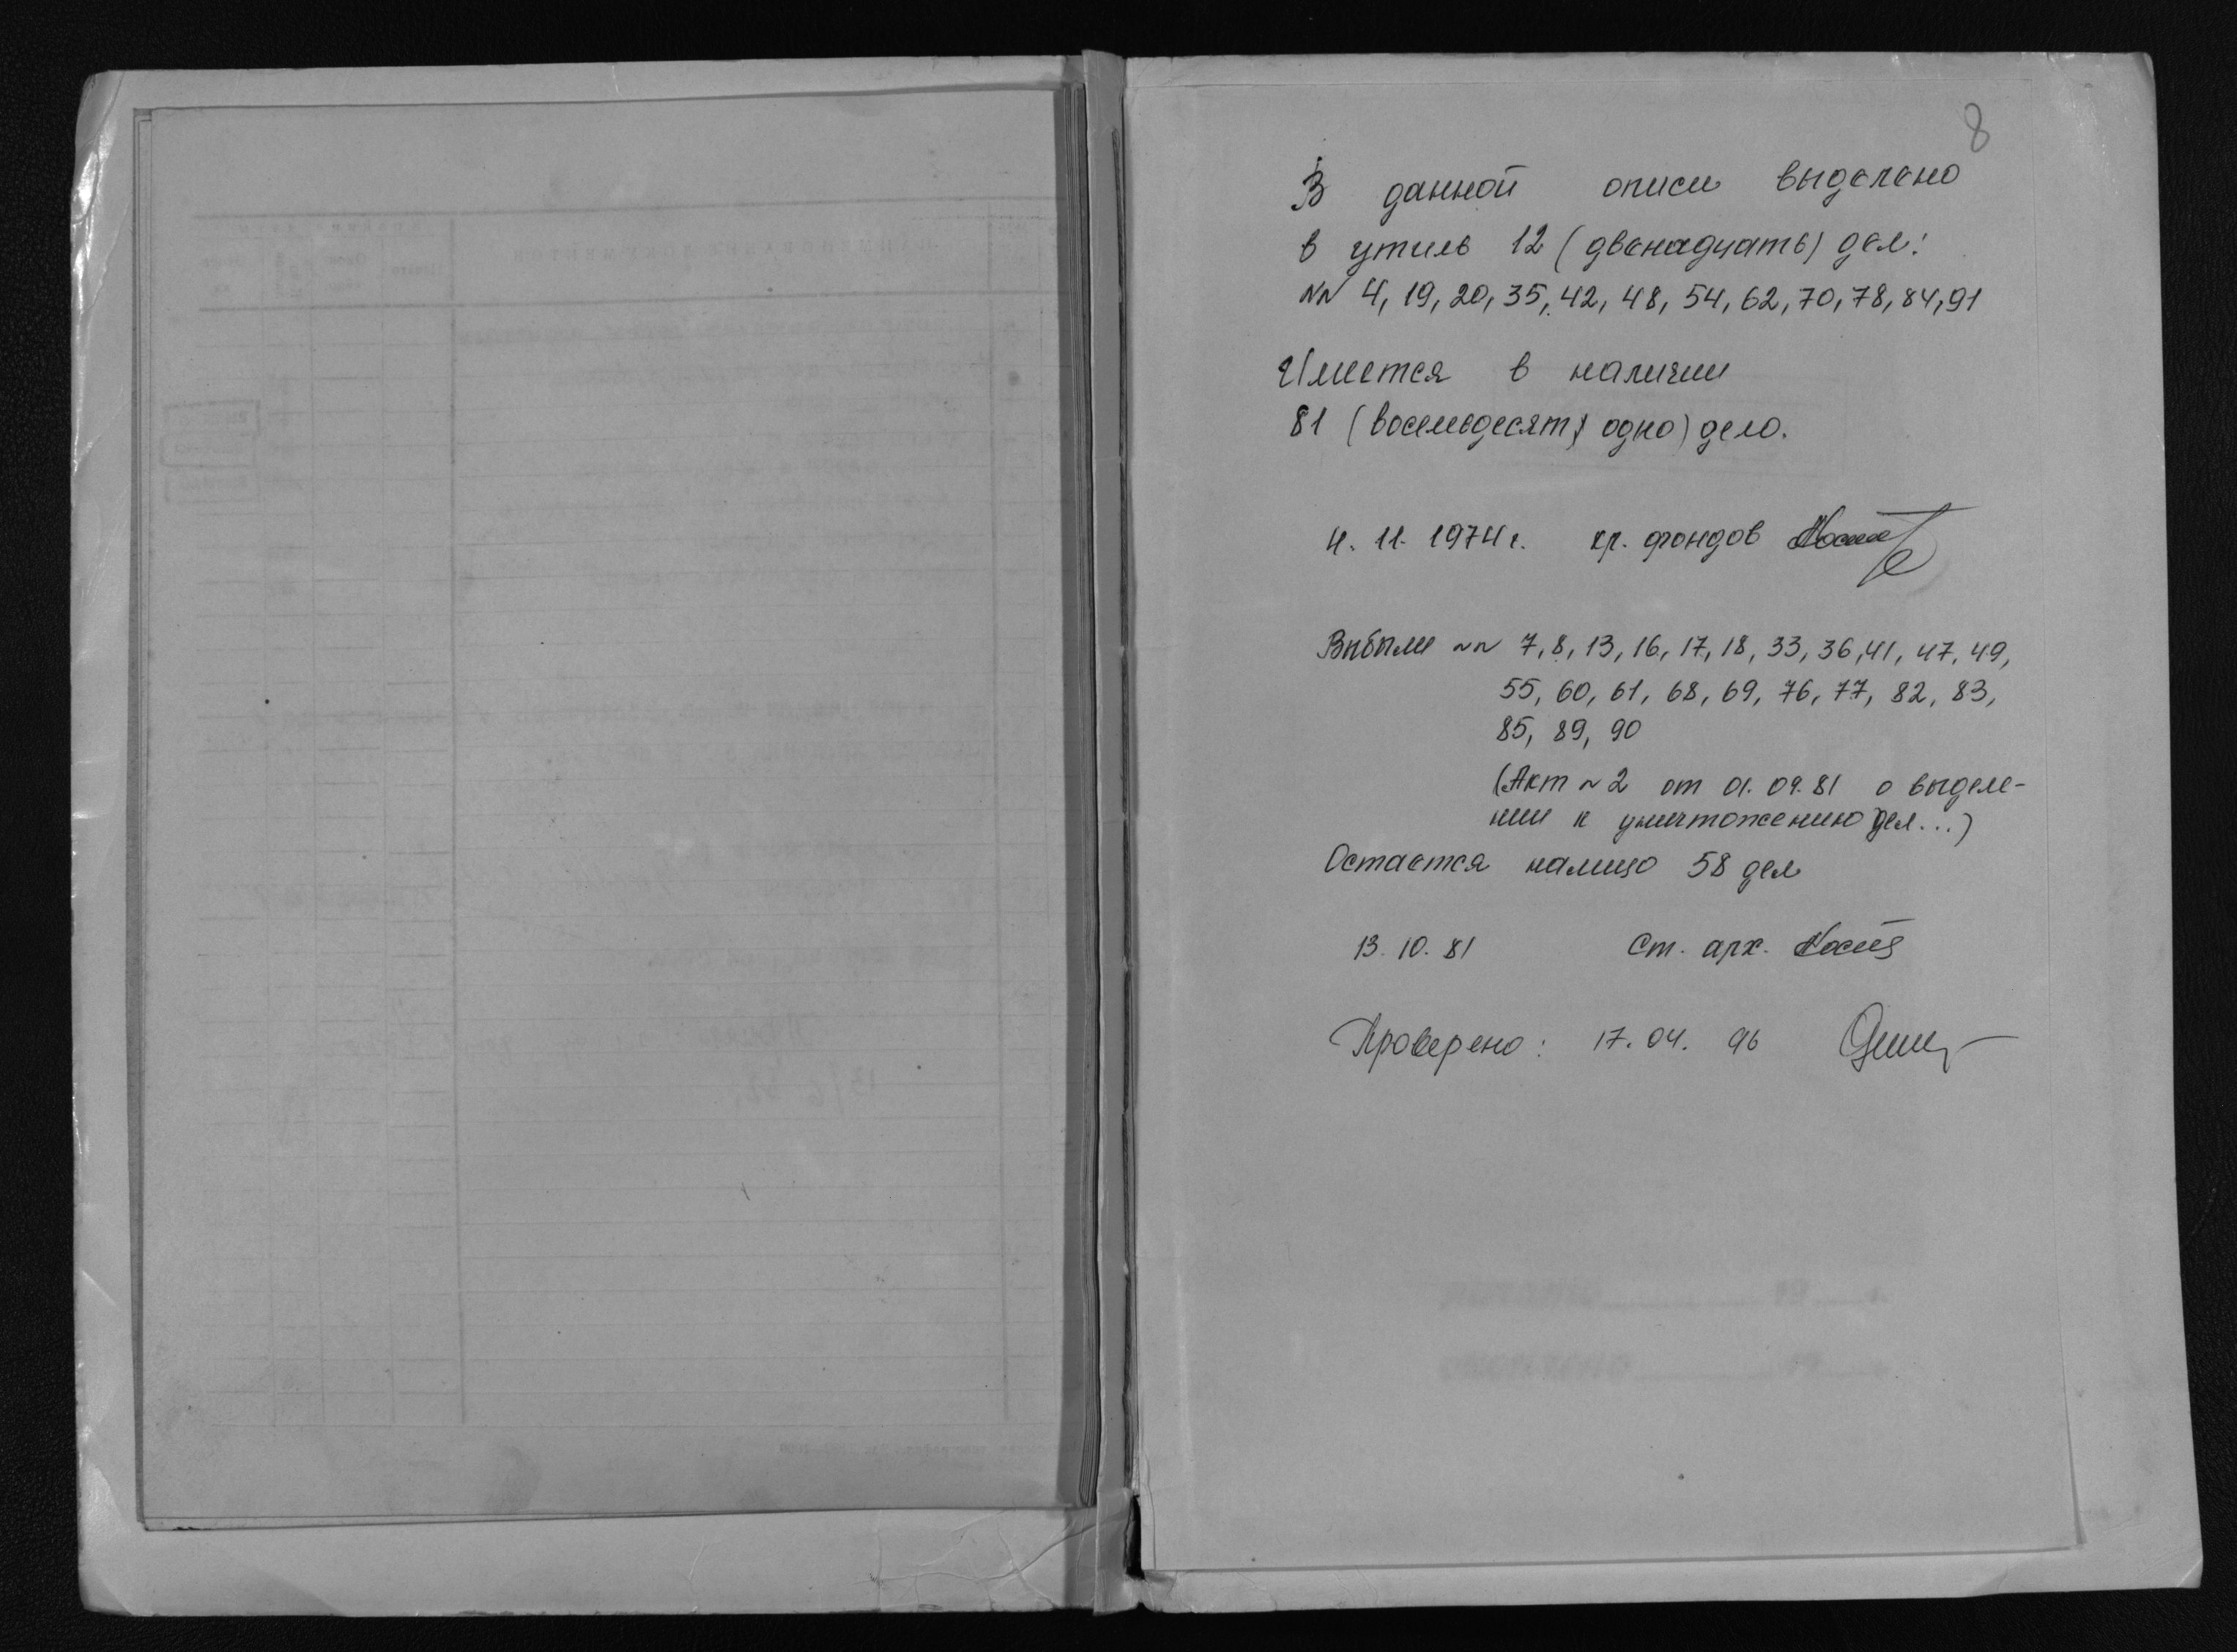 8
В данной описи выделено
в утиль 12 (двенадцать) дел:
NN 4, 19, 20, 35, 42, 48, 54, 62, 70, 78, 84, 91
Имеется в наличии
81 (восемьдесят одно) дело.
4. 11. 1974 г. хр. фондов
Выбыли NN 7, 8, 13, 16, 17, 18, 33, 36, 41, 47, 49,
55, 60, 61, 68, 69, 76, 77, 82, 83,
85, 89, 90
(Акт N 2 от 01.09.81 о выделе-
нии к уничтожению дел...)
Остается налицо 58 дел
13. 10. 81 Ст. арх.
Проверено: 17. 04. 96